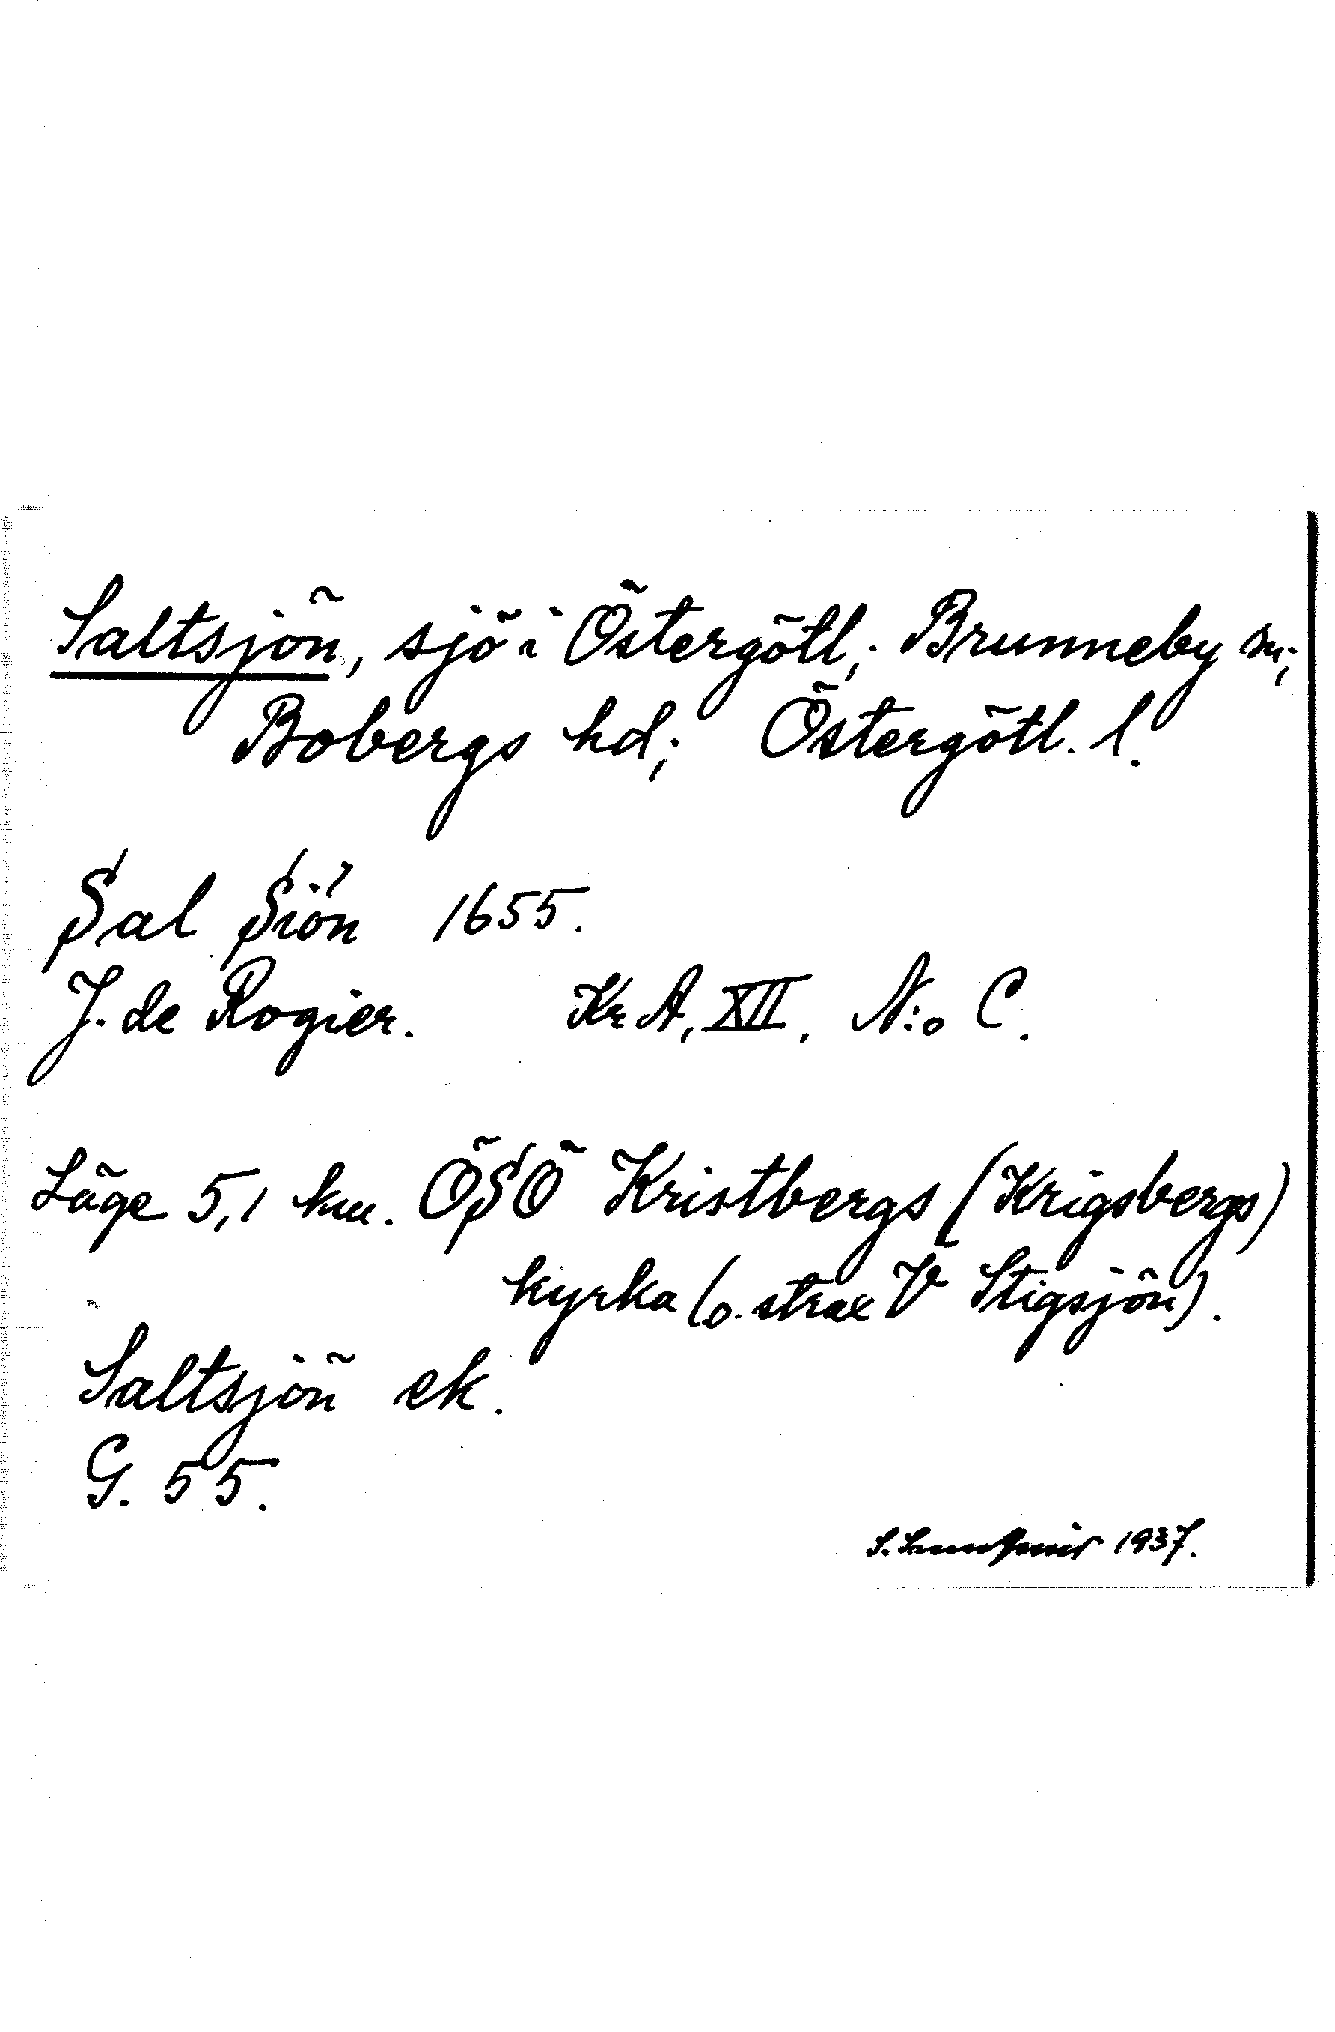 Saltsjön, sjö i Östergötl.; Brunneby sn;
Bobergs hd; Östergötl. l.
Sal Siön 1655.
J. de Rogier. KrA, XII. N:o C.
Läge 5,1 km. ÖSÖ Kristbergs (Krigsbergs)
kyrka (o. strax V Stigsjön).
Saltsjön ek.
G. 55.
S. 1937.